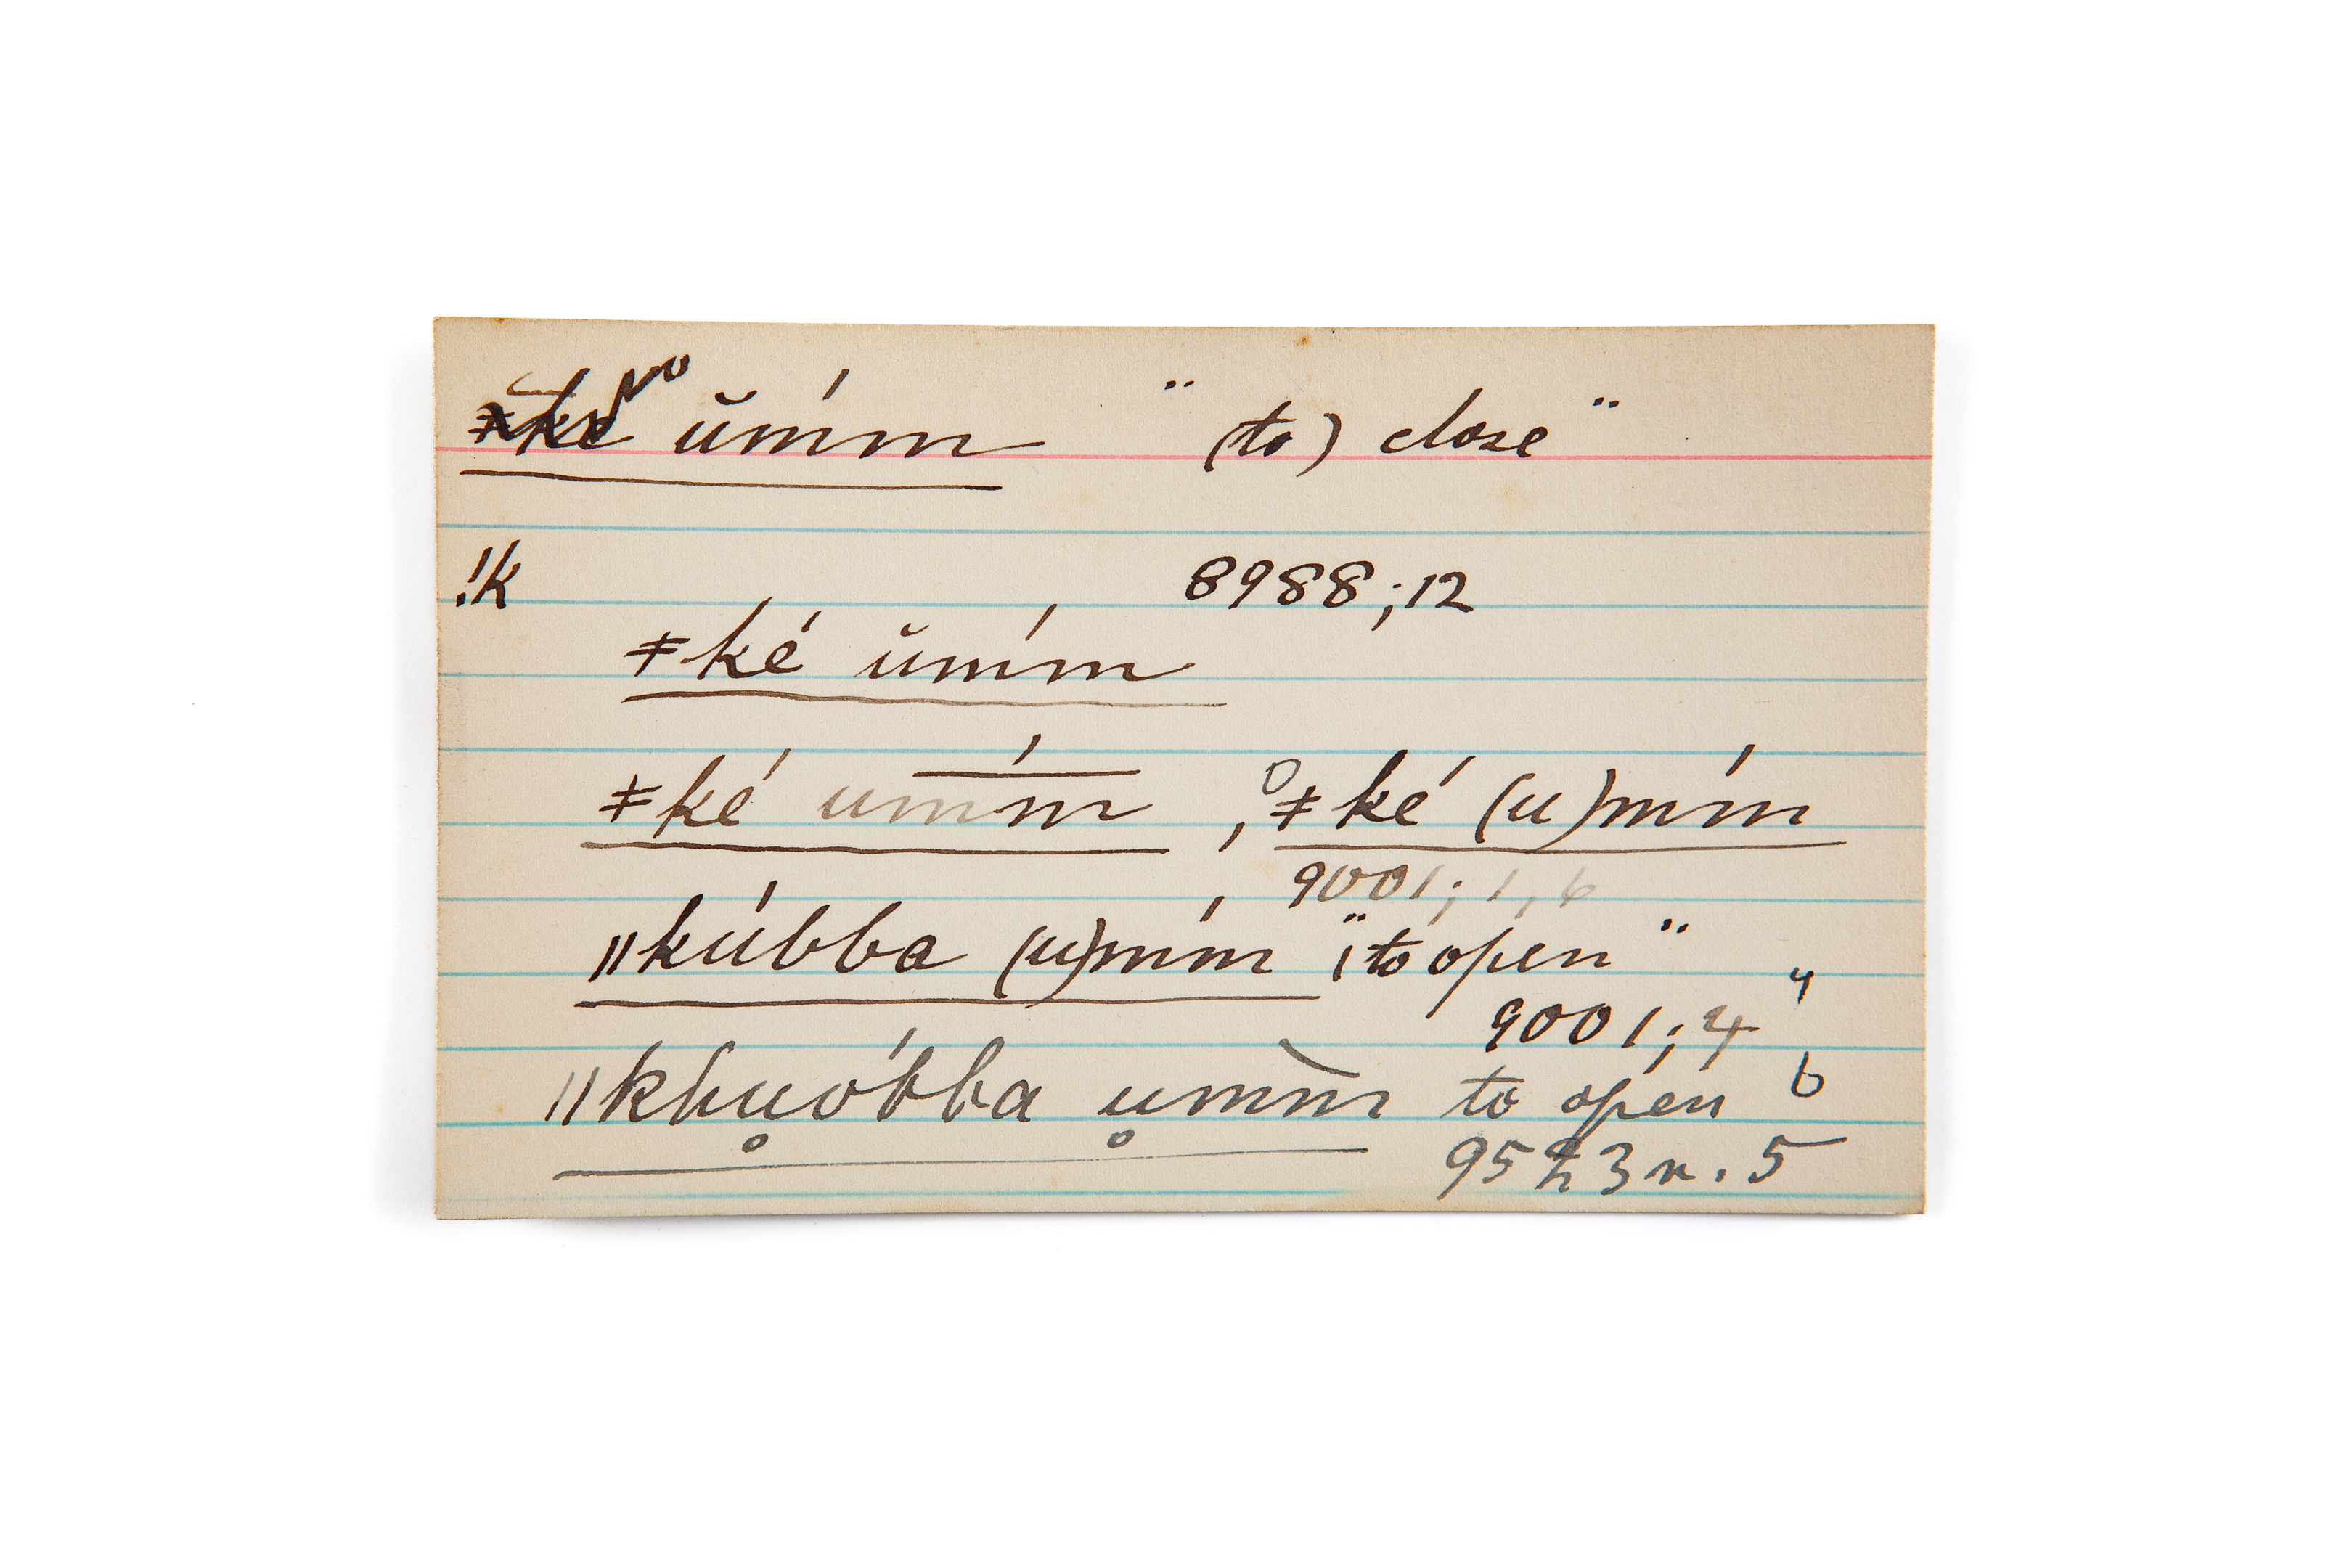 ŭmḿ " (to) close "
!k 8988 ; 12
ǂké ŭmḿ
ǂké umḿ̄ , ǂké (u)mḿ
9001 ; 1, 6
ǁkúbba (u)mḿ " to open "
9001 ; 4
ǁkhu̥óbba u̥mm̀ to open 6
9523 r. 5